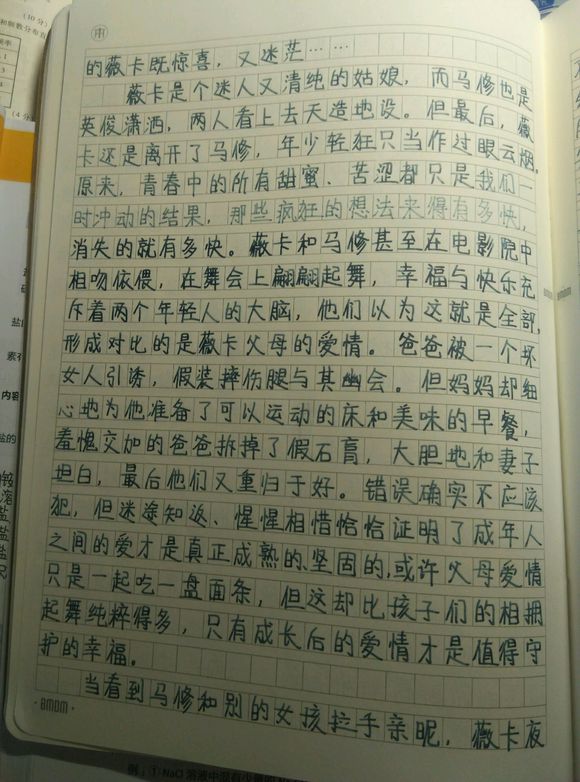 的薇卡既惊喜，又迷茫……
薇卡是个迷人又清纯的姑娘，而马修也是
英俊潇洒，两人看上去天造地设。但最后，薇
卡还是离开了马修，年少轻狂只当作过眼云烟。
原来，青春中的所有甜蜜、苦涩都只是我们一
时冲动的结果，那些疯狂的想法来得有多快，
消失的就有多快。薇卡和马修甚至在电影院中
相吻依偎，在舞会上翩翩起舞，幸福与快乐充
斥着两个年轻人的大脑，他们以为这就是全部，
形成对比的是薇卡父母的爱情。爸爸被一个坏
女人引诱，假装摔伤腿与其幽会。但妈妈却细
心地为他准备了可以运动的床和美味的早餐，
羞愧交加的爸爸拆掉了假石膏，大胆地和妻子
坦白，最后他们又重归于好。错误确实不应该
犯，但迷途知返、惺惺相惜恰恰证明了成年人
之间的爱才是真正成熟的、坚固的，或许父母爱情
只是一起吃一盘面条，但这却比孩子们的相拥
起舞纯粹得多，只有成长后的爱情才是值得守
护的幸福。
当看到马修和别的女孩拉手亲昵，薇卡夜
amom
例：① NaCl 溶液中混有少量的